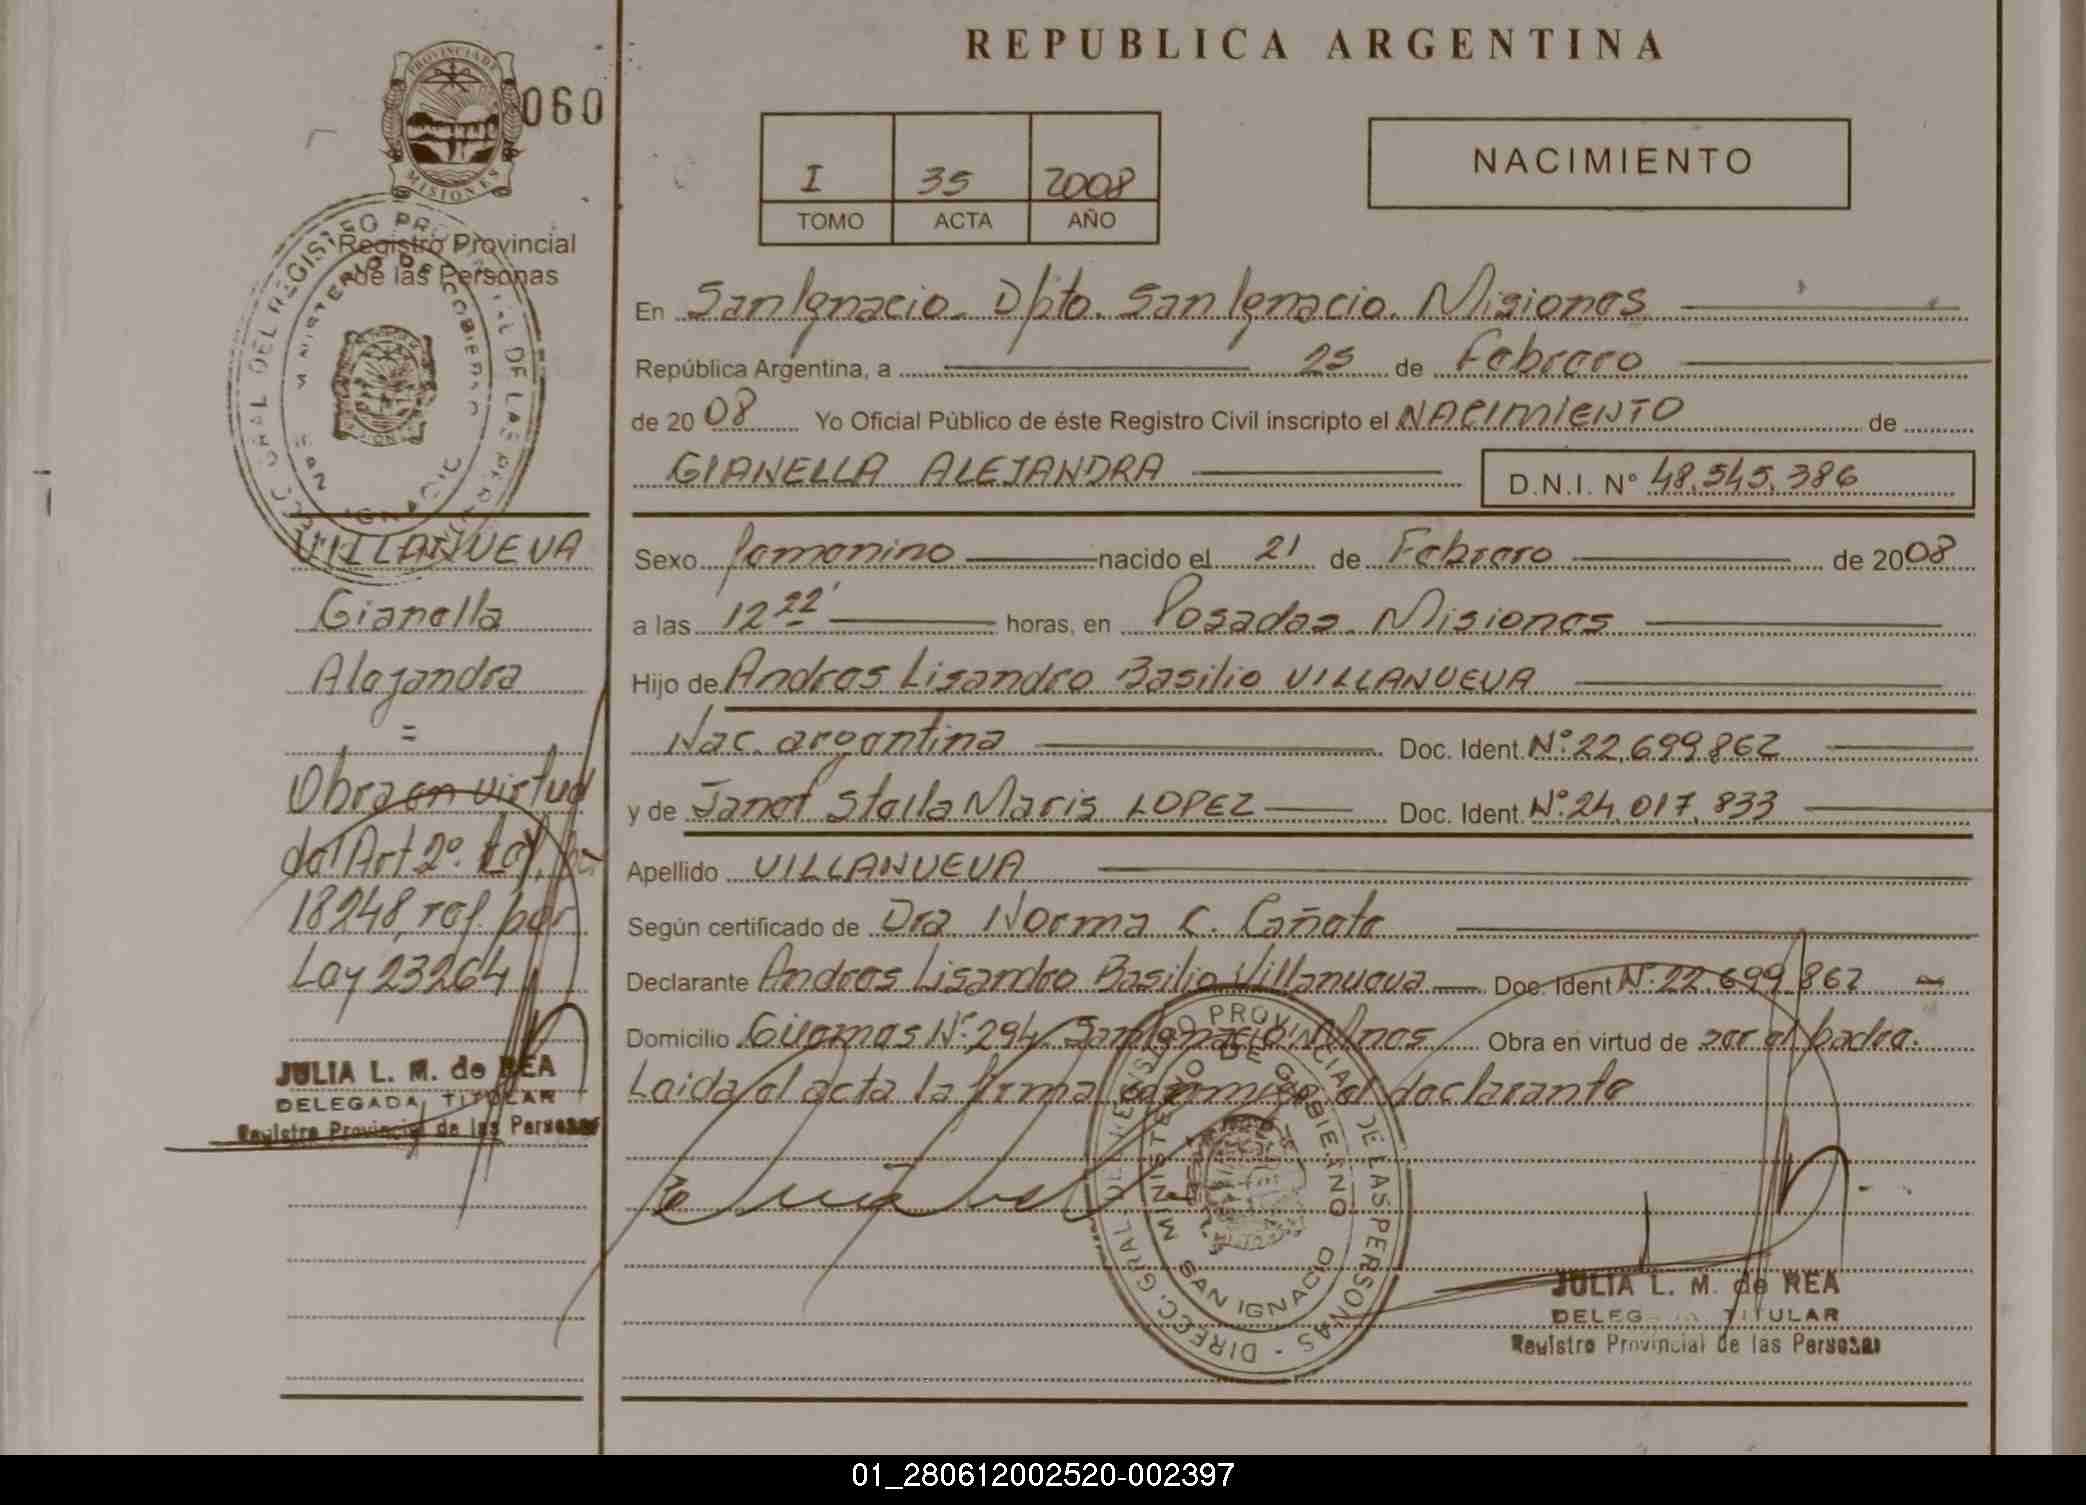 REPUBLICA ARGENTINA
PROVINCIA DE
MISIONES
060
Registro Provincial
de las Personas
I 35 2008
TOMO ACTA AÑO
NACIMIENTO
En San Ignacio. Dpto. San Ignacio. Misiones
República Argentina, a 25 de Febrero
de 2008 Yo Oficial Público de éste Registro Civil inscripto el NACIMIENTO de
GIANELLA ALEJANDRA D.N.I. N° 48.545.386
Sexo femenino nacido el 21 de Febrero de 2008
a las 12 22' horas, en Posadas. Misiones
Hijo de Andres Lisandro Basilio VILLANUEVA
Nac. argentina Doc. Ident. N°. 22.699.862
y de Janet Stella Maris LOPEZ Doc. Ident. N°. 24.017.833
Apellido VILLANUEVA
Según certificado de Dra Norma C. Cañete
Declarante Andres Lisandro Basilio Villanueva Doc. Ident N°. 22.699.862
Domicilio N°. 294 San Ignacio Mnes Obra en virtud de ser el padre.
Leida el acta la firma conmigo el declarante
VILLANUEVA
Gianella
Alejandra
=
Obra en virtud
del Art 2°. Ley
18248, ref. por
Ley 23264
JULIA L. M. de REA
DELEGADA TITULAR
Registro Provincial de las Personas
DIRECC. GRAL. DEL REGISTRO PROVINCIAL DE LAS PERSONAS
MINISTERIO DE GOBIERNO
SAN IGNACIO
JULIA L. M. de REA
DELEGADA TITULAR
Registro Provincial de las Personas
01_280612002520-002397